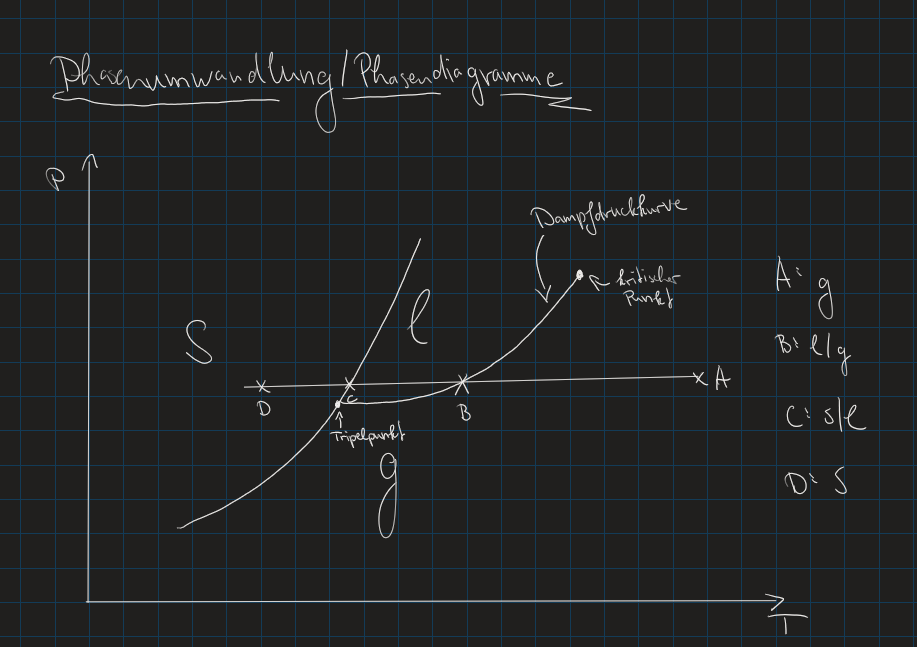 Phasenumwandlung/Phasendiagramme
P
Dampfdruckkurve
kritischer
Punkt
S
l
A: g
B: l/g
D
C
B
A
C: s/l
Tripelpunkt
g
D: S
T